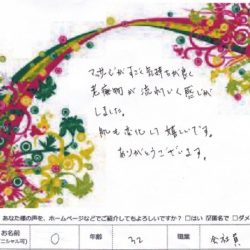 マッサージがすごく気持ちが良く
老廃物が流れていく感じが
しました。
肌も変化して嬉しいです。
ありがとうございます。
あなた様の声を、ホームページなどでご紹介してもよろしいですか？ □はい □匿名で □ダメ
お名前 〇 年齢 32 職業 会社員
ニシャル可)